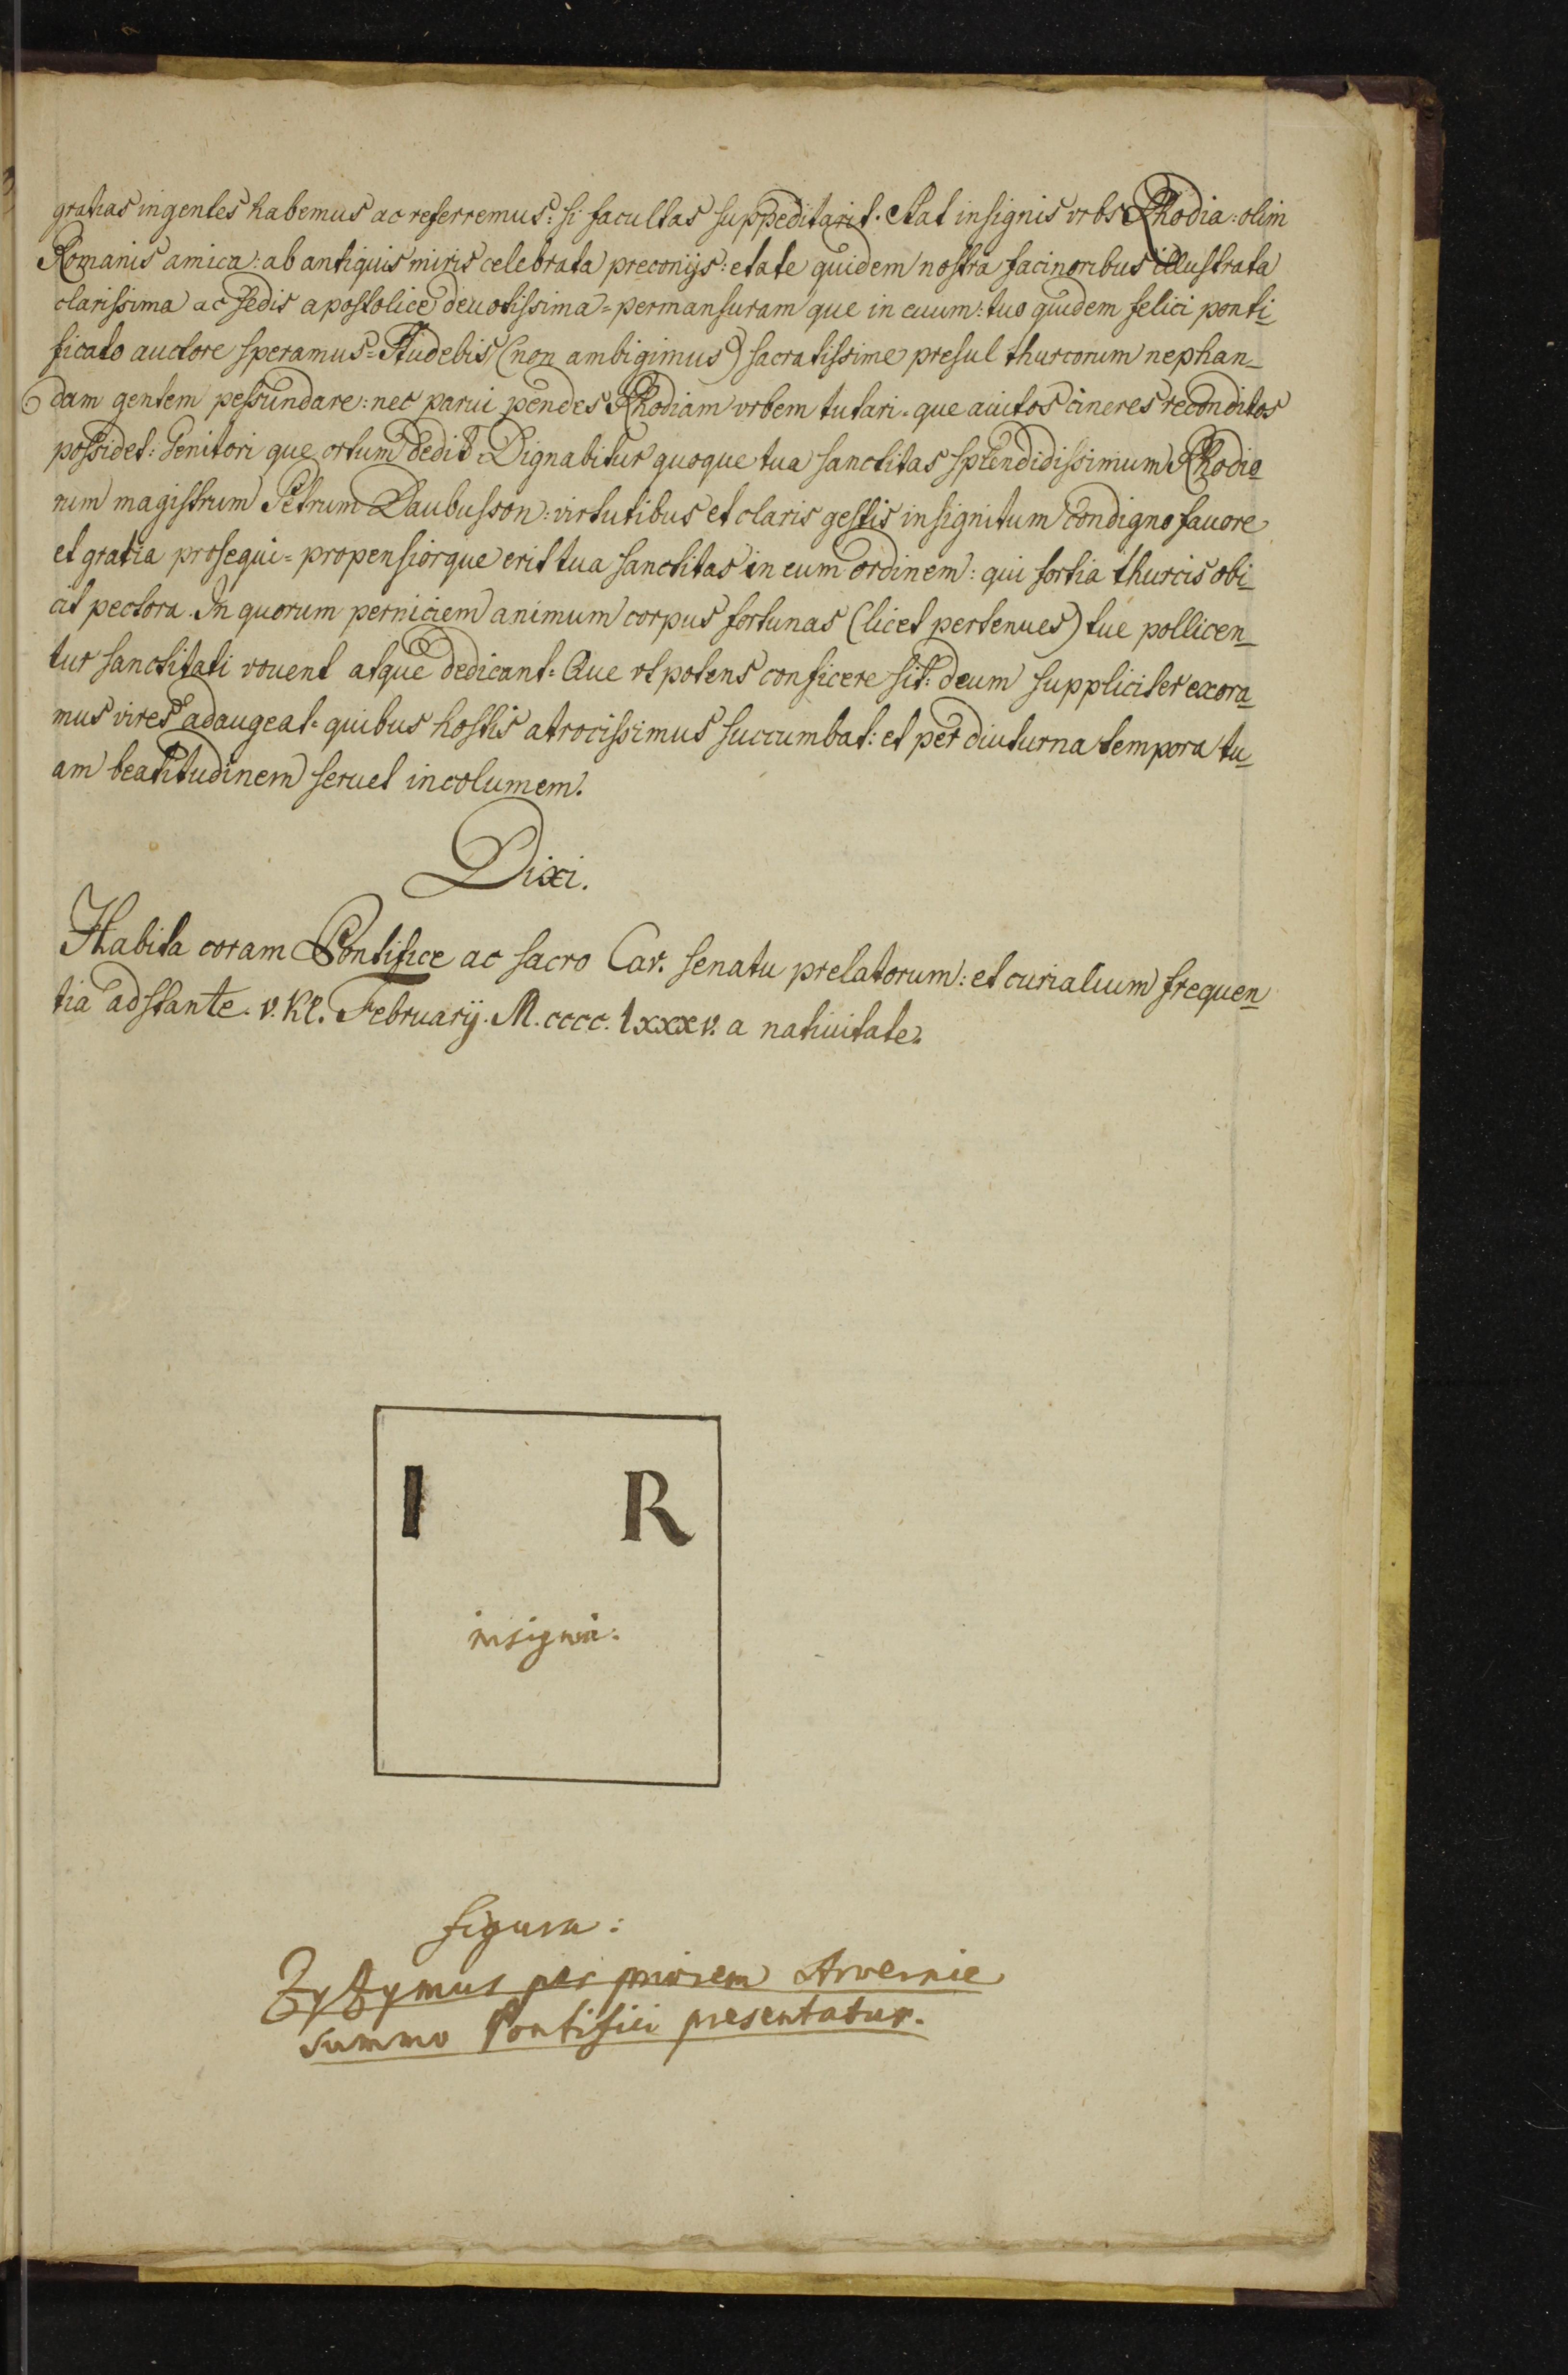 gratias ingentes habemus ac referremus: si facultas suppeditarit. Stat insignis vrbs Rhodia: olim
Romanis amica: ab antiquis miris celebrata preconijs: etate quidem nostra facinoribus illustrata
clarissima ac sedis apostolice deuotissima= permansuram que in euum: tuo quidem felici ponti_
ficato auctore speramus= Studebis (non ambigimus) sacratissime presul thurcorum nephan_
dam gentem pessundare: nec parui pendes Rhodiam vrbem tutari= que auitos cineres reconditos
possidet: Genitori que ortum dedit Dignabitur quoque tua sanctitas splendidissimum Rhodio_
rum magistrum Petrum Daubusson: virtutibus et claris gestis insignitum condigno fauore
et gratia prosequi= propensiorque erit tua sanctitas in eum ordinem: qui fortia thurcis obi_
cit pectora. In quorum perniciem animum corpus fortunas (licet pertenues) tue pollicen_
tur sanctitati vouent atque dedicant= Que vt potens conficere sit: deum suppliciter exora_
mus vires adaugeat= quibus hostis atrocissimus succumbat: et per diuturna tempora tu_
am beatitudinem seruet incolumem.
Dixi.
Habita coram Pontifice ac sacro Car. senatu prelatorum: et curialium frequen_
tia adstante. v. Kl. Februarij. M. cccc. lxxxv. a natiuitate.
I R
insignia:
figura:
Zyzymus per priorem Arvernie
summo Pontifici presentatur.